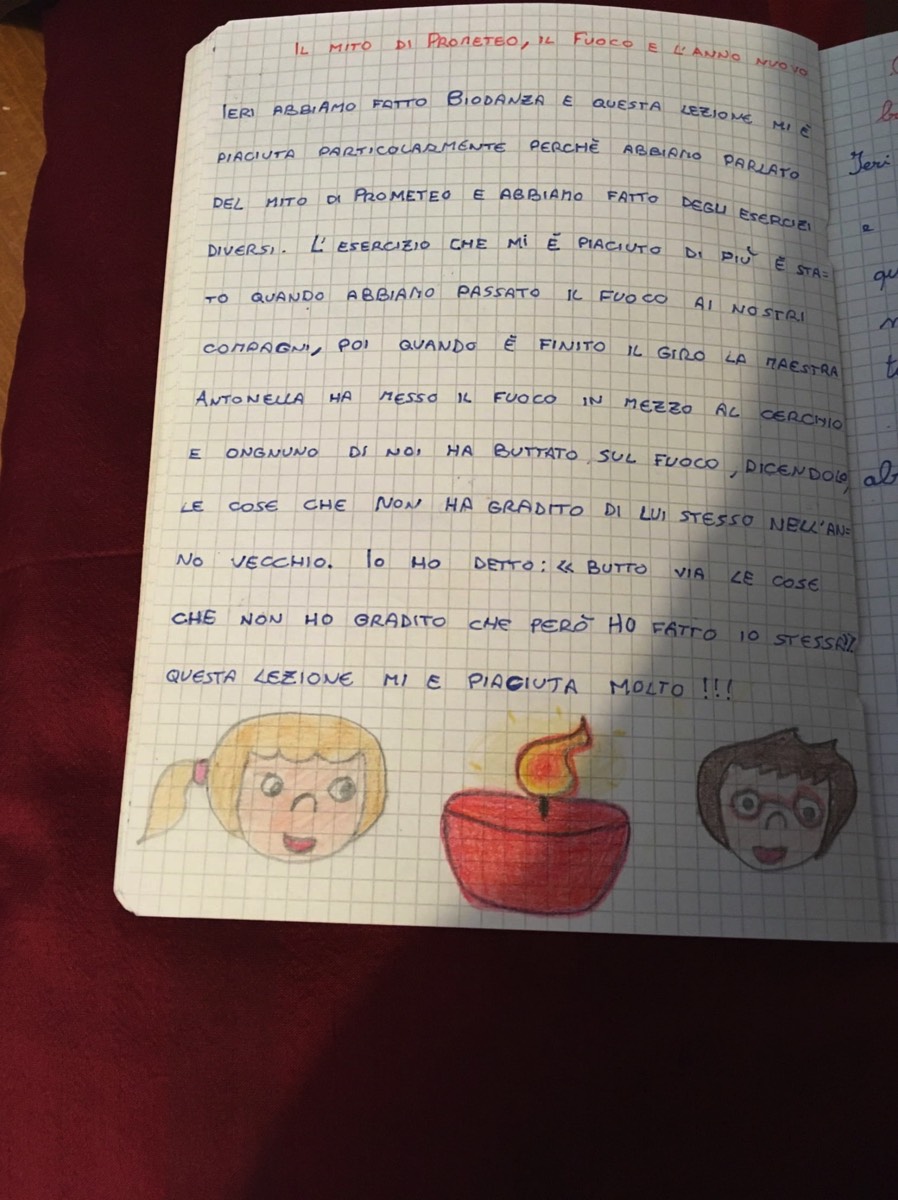 IL MITO DI PROMETEO, IL FUOCO E L'ANNO NUOVO
IERI ABBIAMO FATTO BIODANZA E QUESTA LEZIONE MI È
PIACIUTA PARTICOLARMENTE PERCHÈ ABBIAMO PARLATO
DEL MITO DI PROMETEO E ABBIAMO FATTO DEGLI ESERCIZI
DIVERSI. L'ESERCIZIO CHE MI È PIACIUTO DI PIÙ È STA=
TO QUANDO ABBIAMO PASSATO IL FUOCO AI NOSTRI
COMPAGNI, POI QUANDO È FINITO IL GIRO LA MAESTRA
ANTONELLA HA MESSO IL FUOCO IN MEZZO AL CERCHIO
E ONGNUNO DI NOI HA BUTTATO SUL FUOCO, DICENDOLO,
LE COSE CHE NON HA GRADITO DI LUI STESSO NELL'AN=
NO VECCHIO. IO HO DETTO: « BUTTO VIA LE COSE
CHE NON HO GRADITO CHE PERÒ HO FATTO IO STESSA».
QUESTA LEZIONE MI E PIACIUTA MOLTO !!!
Ieri
e
qu